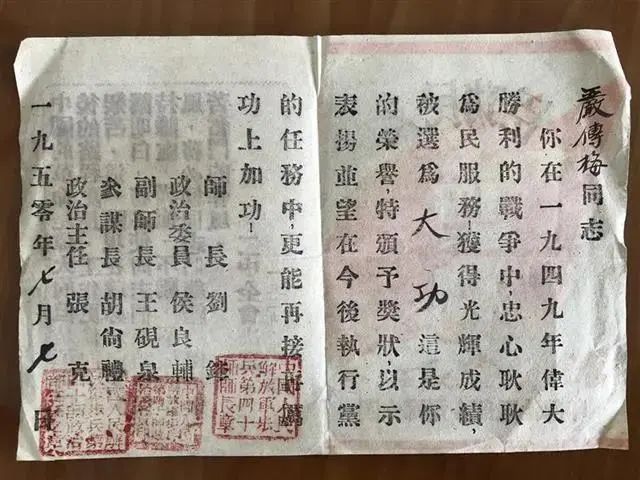 嚴傳梅同志
你在一九四九年偉大
勝利的戰爭中,忠心耿耿
爲民服務!獲得光輝成績,
被選爲大功這是你
的榮譽,特頒予獎狀,以示
表揚並望在今後執行黨
的任務中,更能再接
功上加功!
師長劉
政治委員侯良輔
副師長王硯泉
參謀長胡尙禮
政治主任張克
一九五零年七月七日
解放軍步
兵第四十
師師長章